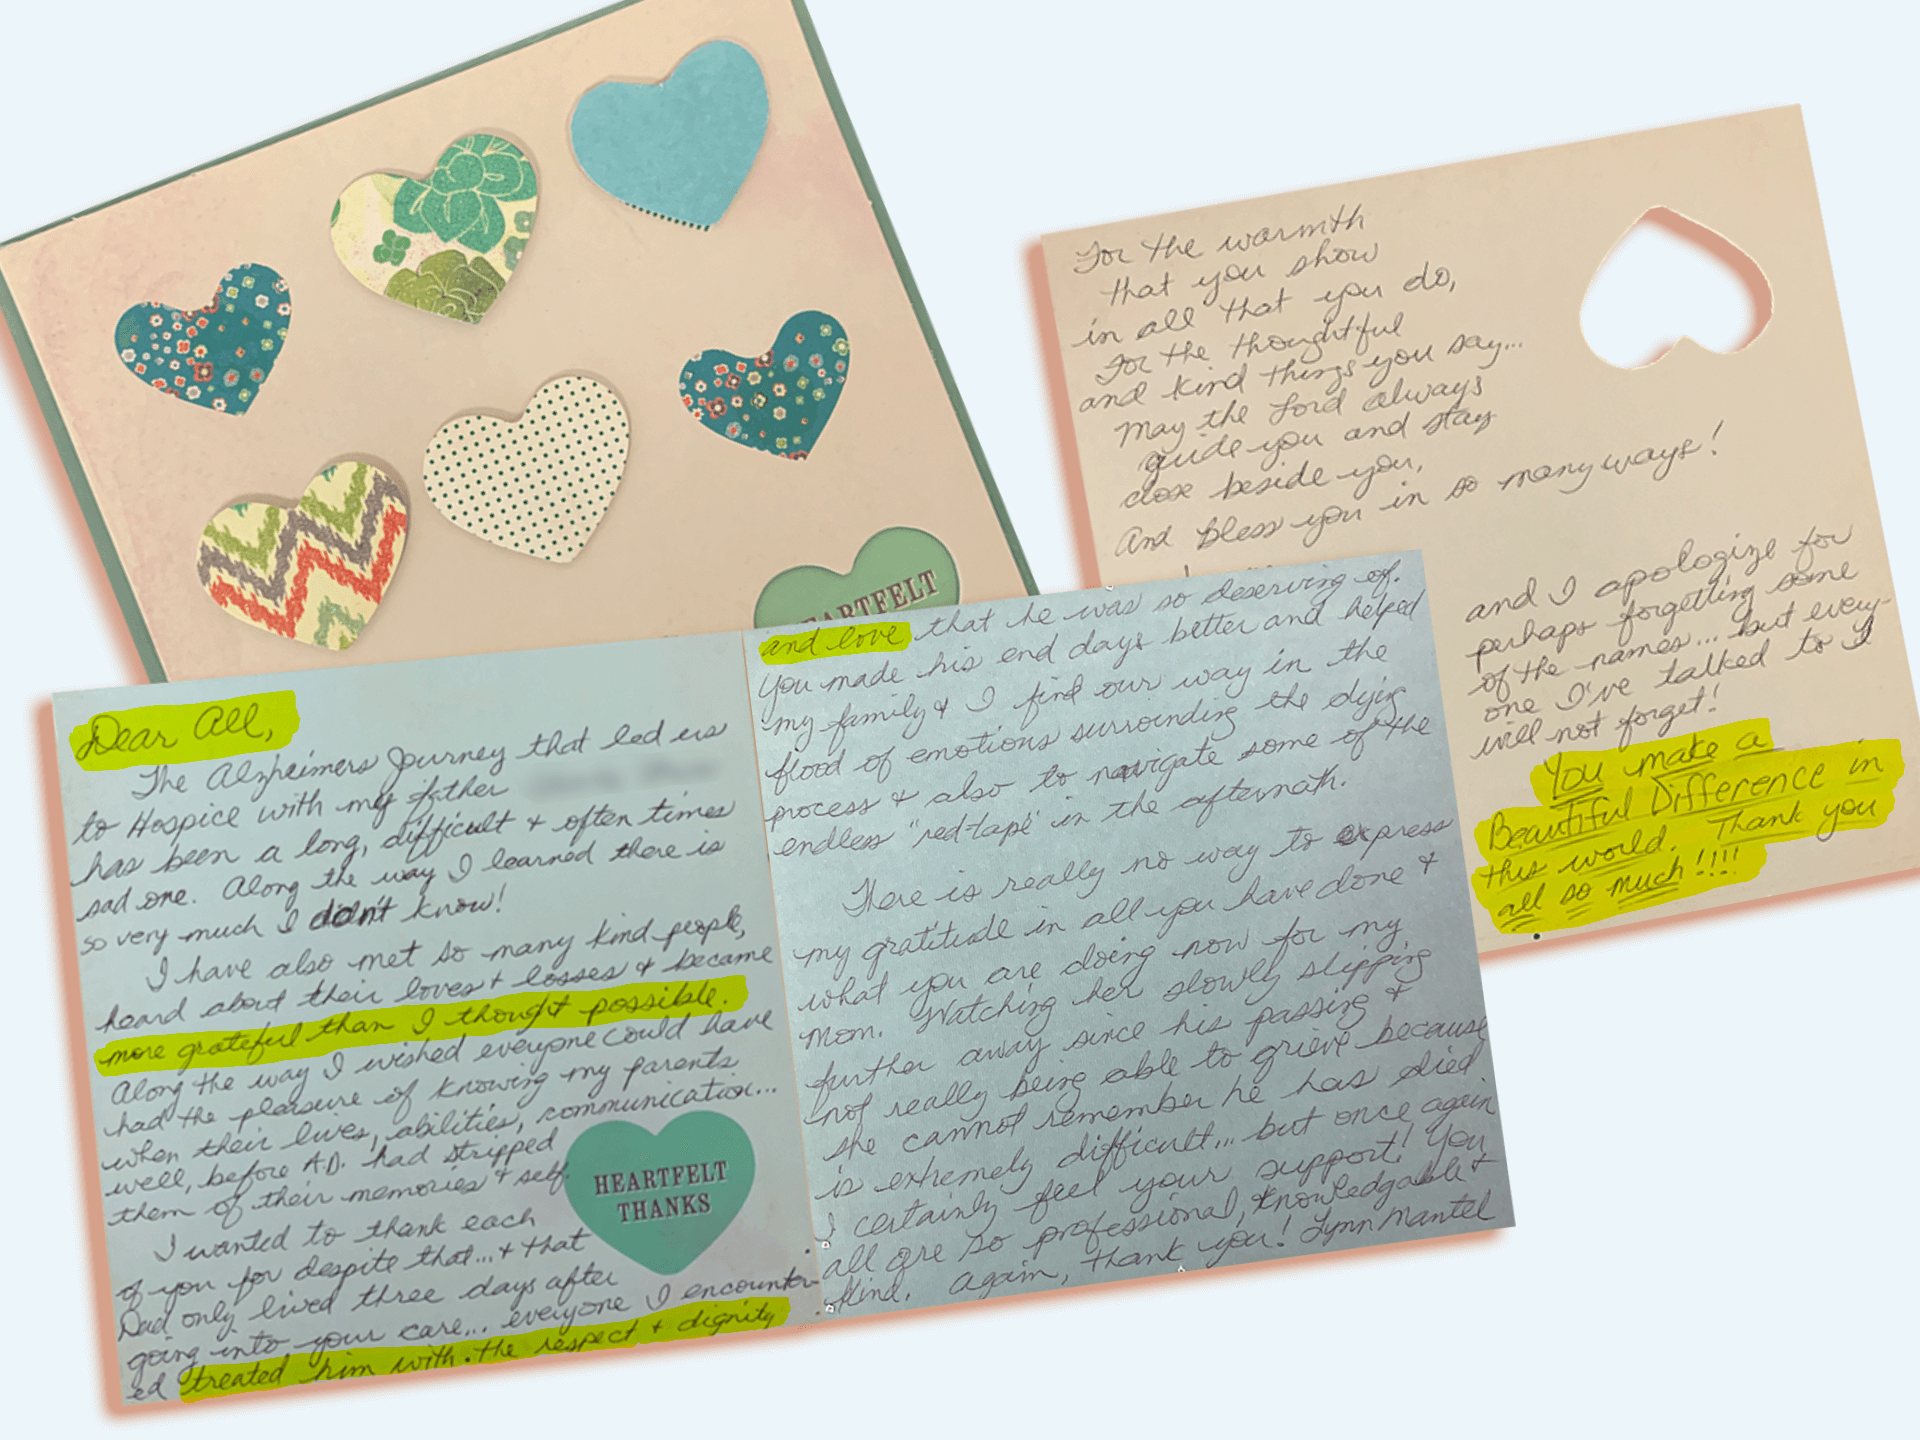 HEARTFELT
For the warmth
that you show
in all that you do,
For the thoughtful
and kind things you say...
May the Lord always
guide you and stay
close beside you,
And bless you in so many ways!
and I apologize for
perhaps forgetting some
of the names... but every-
one I've talked to I
will not forget!
You make a
Beautiful Difference in
this world. Thank you
all so much!!!!
Dear All,
The Alzheimers Journey that led us
to Hospice with my father
has been a long, difficult & often times
sad one. Along the way I learned there is
so very much I didn't know!
I have also met so many kind people,
heard about their loves & losses & became
more grateful than I thought possible.
Along the way I wished everyone could have
had the pleasure of knowing my parents
when their lives, abilities, communication...
well, before A.D. had stripped
them of their memories & self.
I wanted to thank each
of you for despite that...& that
Dad only lived three days after
going into your care... everyone I encounter-
ed treated him with the respect & dignity
HEARTFELT
THANKS
and love that he was so deserving of.
You made his end days better and helped
my family & I find our way in the
flood of emotions surrounding the dying
process & also to navigate some of the
endless "red tape" in the aftermath.
There is really no way to express
my gratitude in all you have done &
what you are doing now for my
Mom. Watching her slowly slipping
further away since his passing &
not really being able to grieve because
she cannot remember he has died
is extremely difficult... but once again
I certainly feel your support! You
all are so professional, knowledgable &
kind. Again, thank you! Lynn Mantel